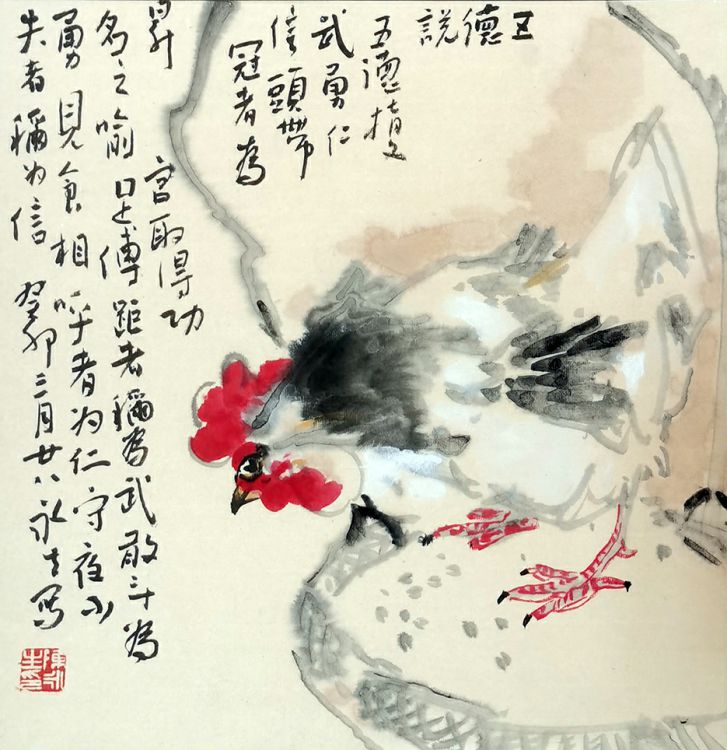 五德說
五德指文
武勇仁
信頭帶
冠者為
昇官取得功
名之喻足傅距者稱為武敢斗為
勇見食相呼者為仁守夜不
失者稱为信 癸卯三月廿八永生写
陳永生印